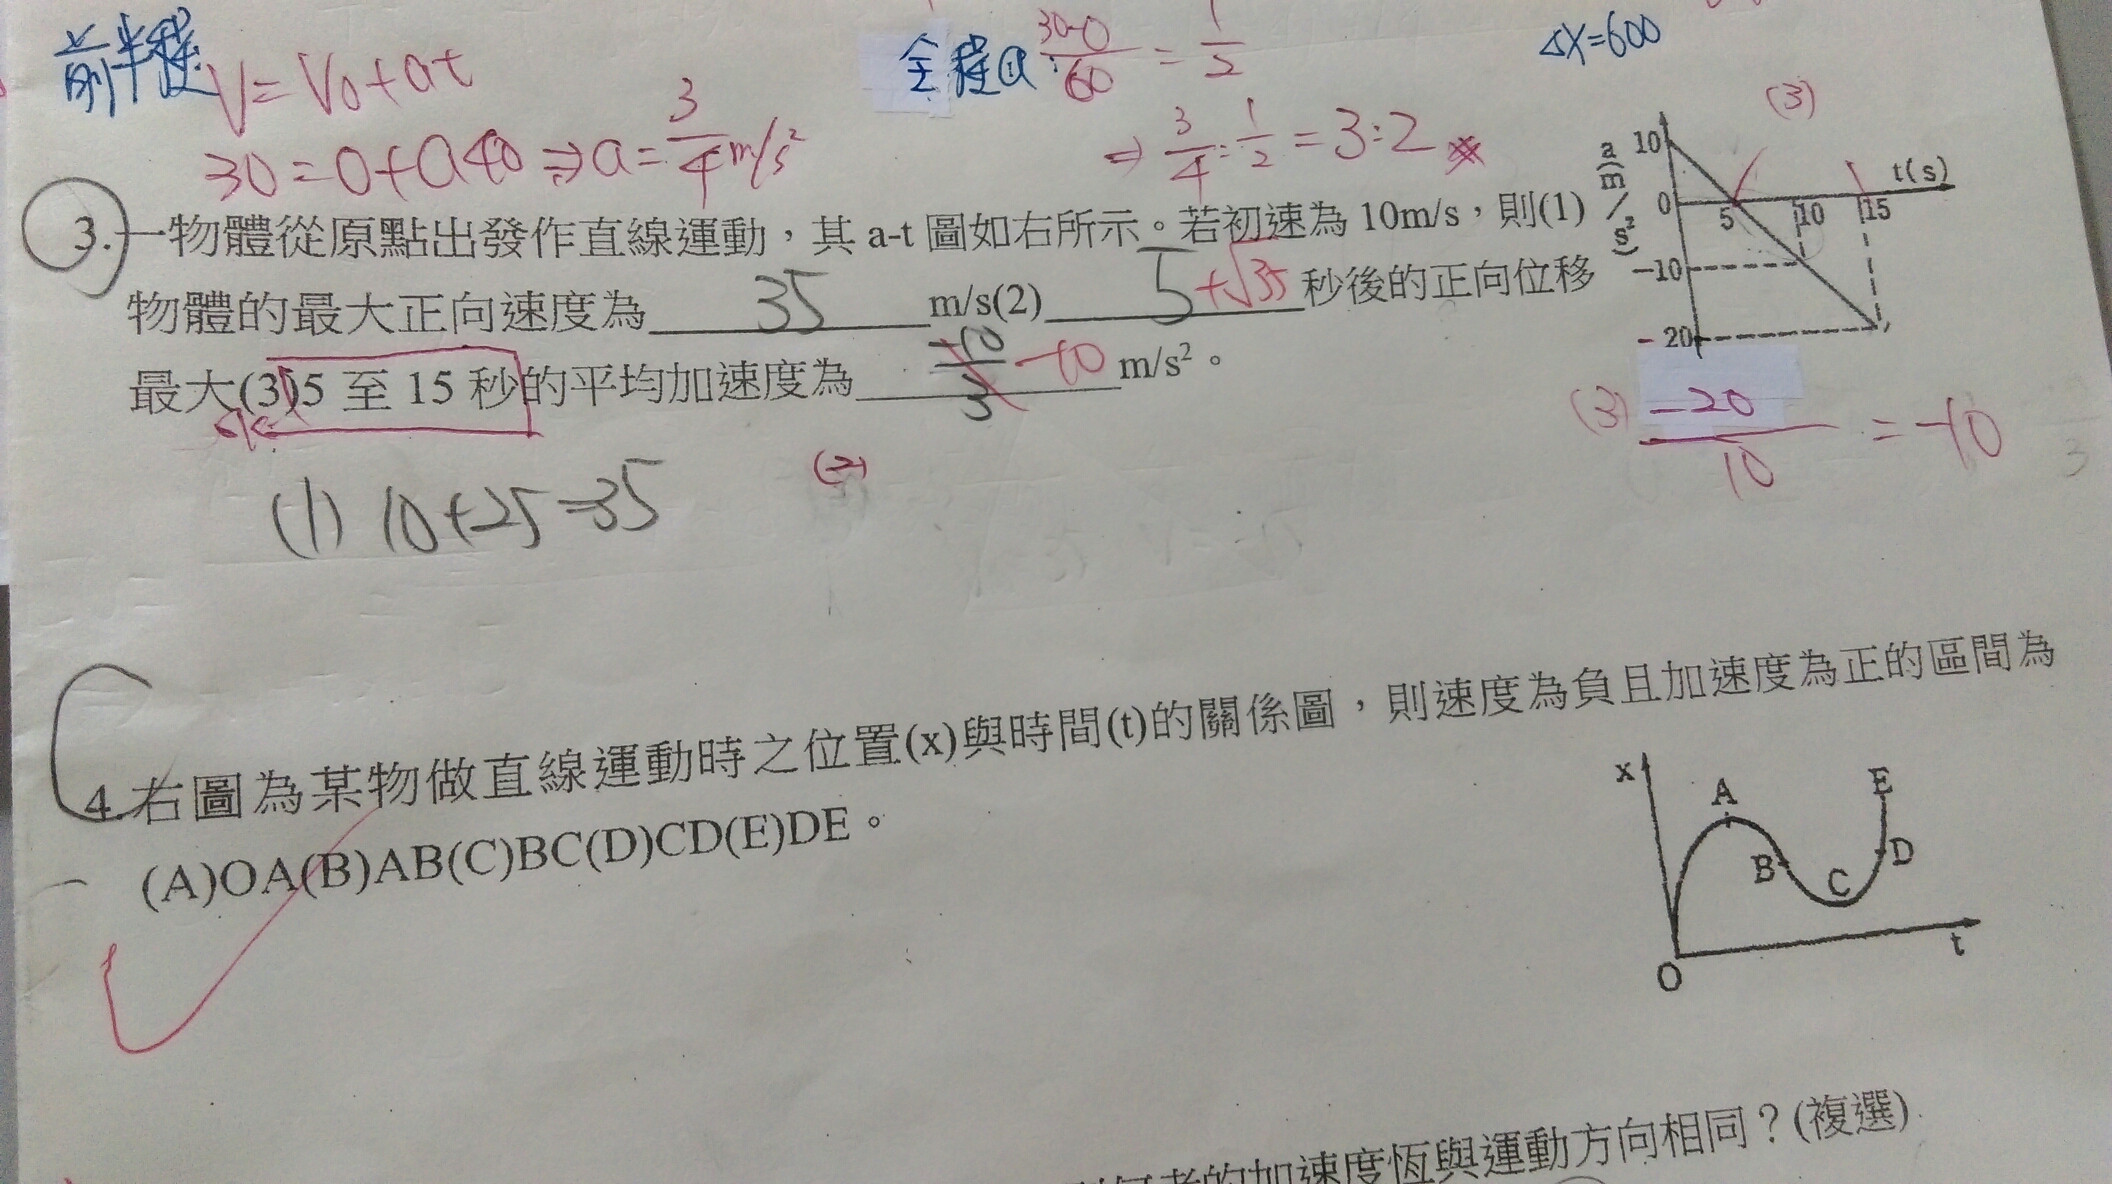 前半程 V=V₀+at
全程a: 30-0/60 = 1/2
ΔX=600
30=0+a40⇒a=3/4 m/s²
⇒ 3/4 : 1/2 = 3:2
(3)
3.一物體從原點出發作直線運動，其 a-t 圖如右所示。若初速為 10m/s，則(1)
物體的最大正向速度為 35 m/s(2) 5+√35 秒後的正向位移
最大(3)5 至 15 秒的平均加速度為 -10/3 -10 m/s²。
a(m/s²)
10
0
-10
-20
5 10 15
t(s)
(3) -20/10 = -10
(1) 10+25=35
(2)
4.右圖為某物做直線運動時之位置(x)與時間(t)的關係圖，則速度為負且加速度為正的區間為
(A)OA(B)AB(C)BC(D)CD(E)DE。
x
A
E
B
C
D
O
t
的加速度恆與運動方向相同？(複選)